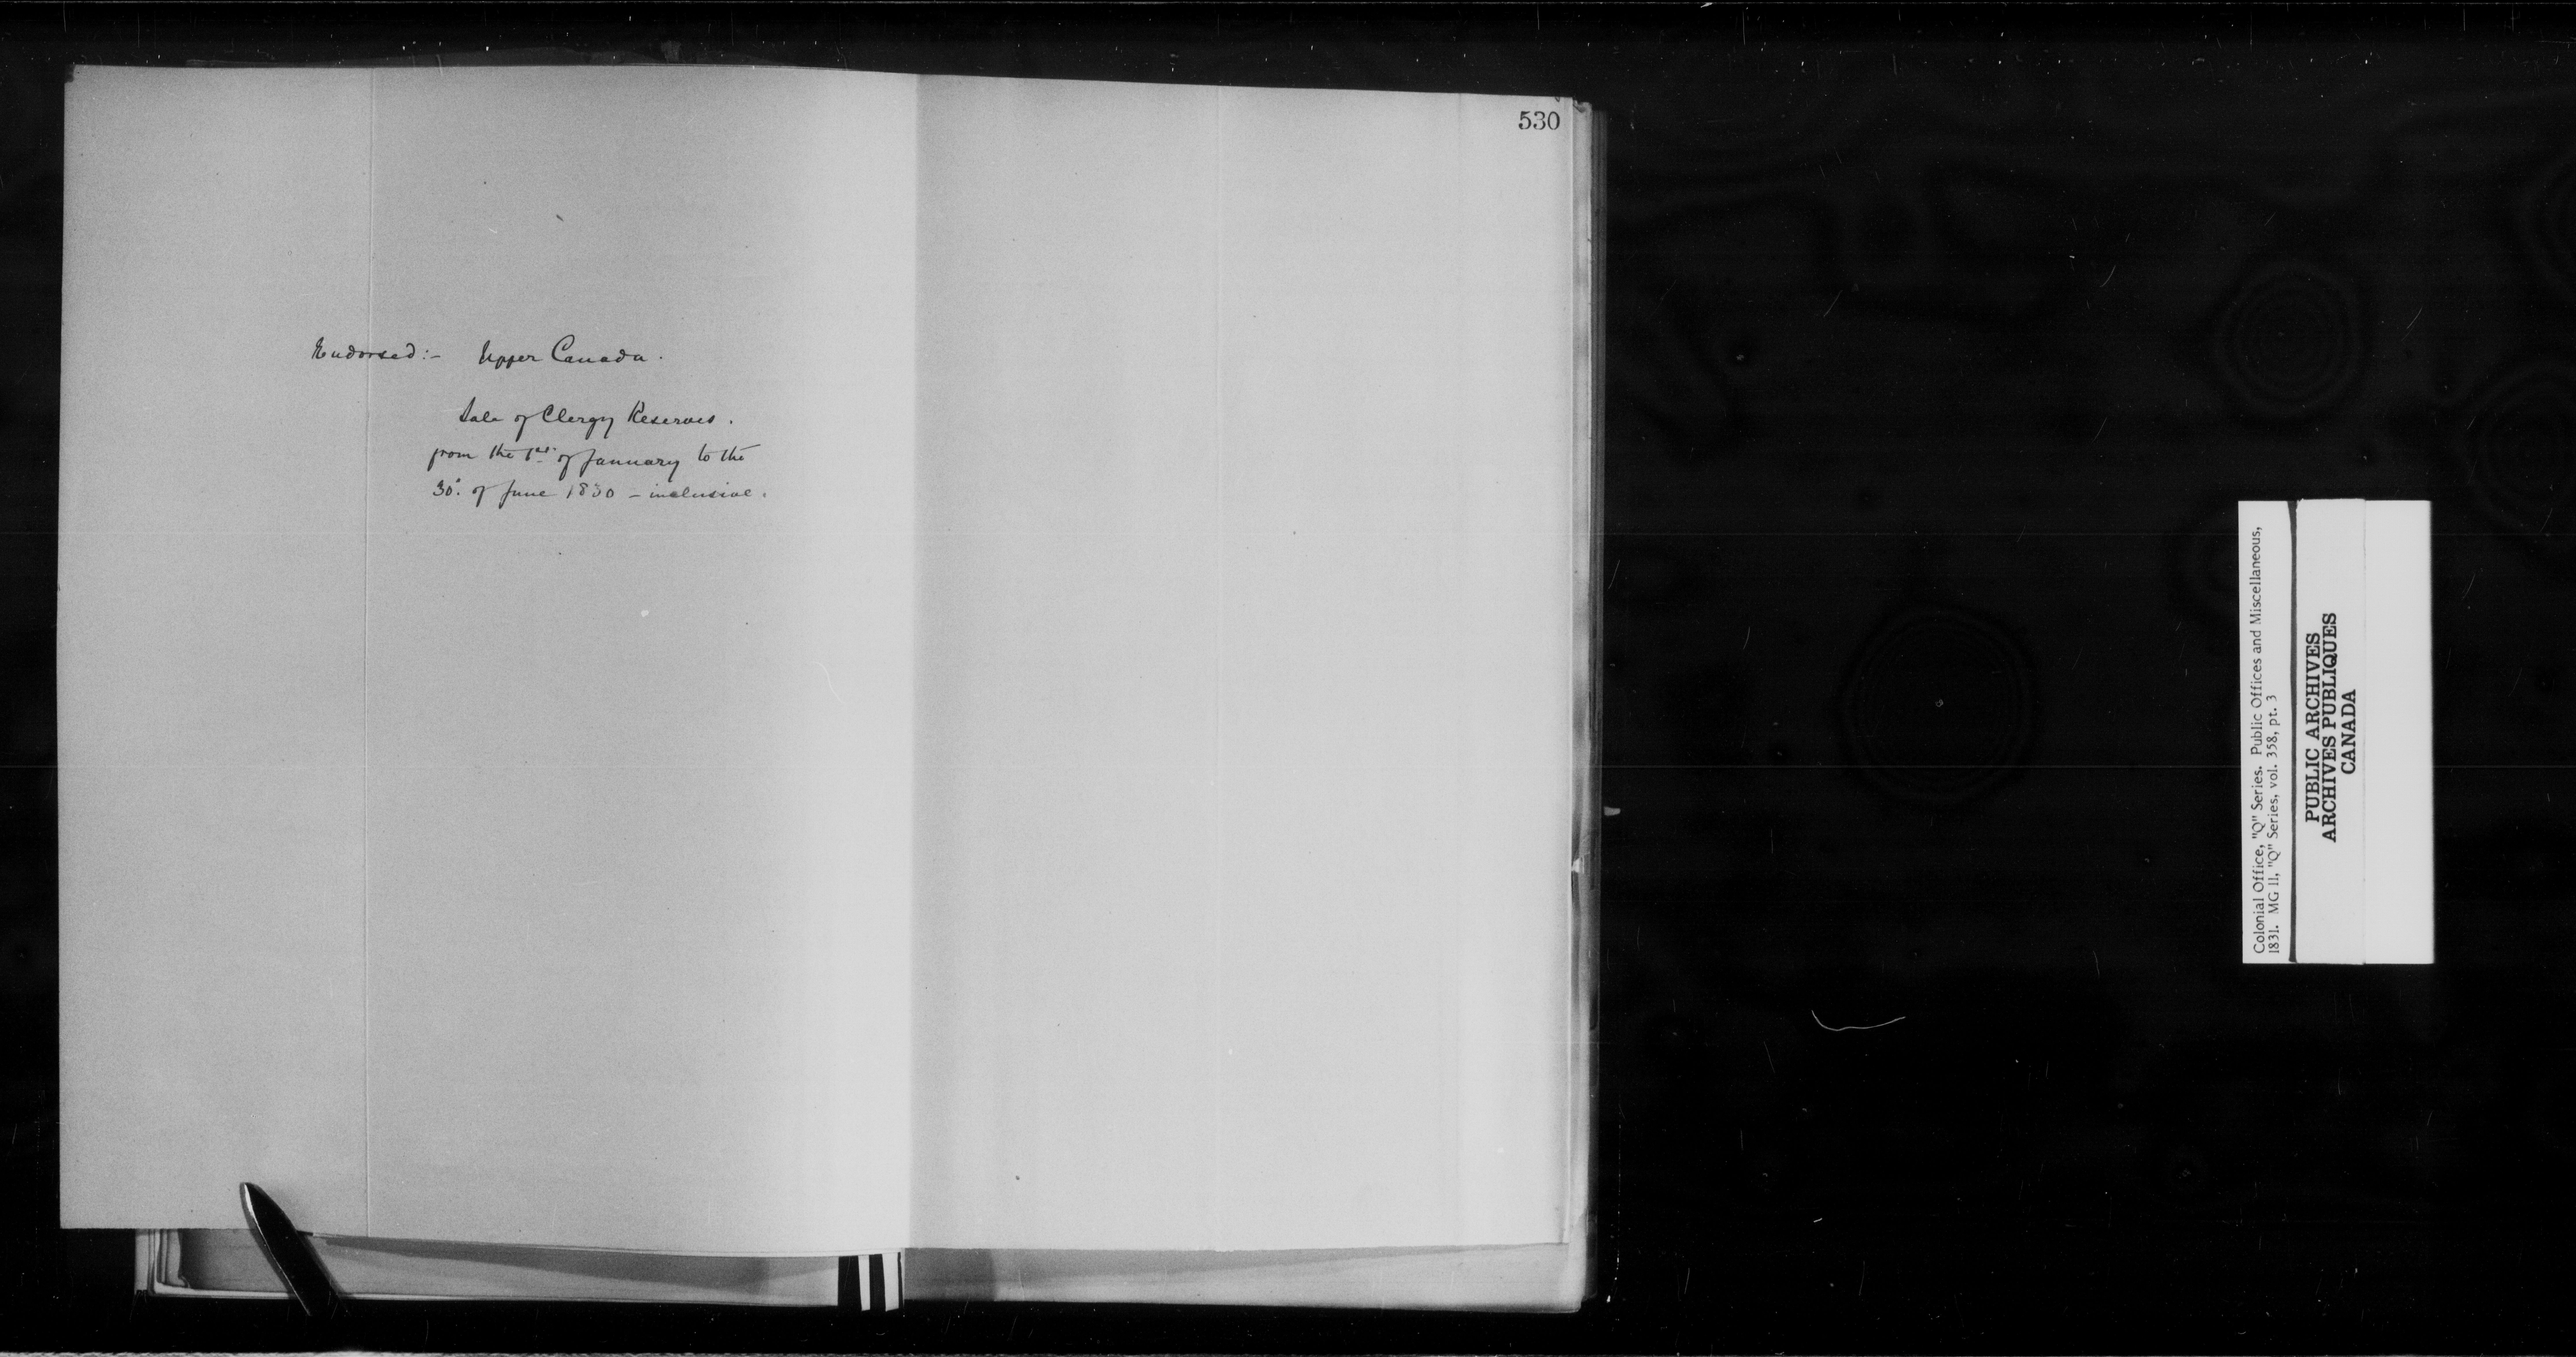 530
Endorsed:- Upper Canada.
Sale of Clergy Reserves.
from the 1st. of January to the
30th. of June 1830 – inclusive.
Colonial Office, "Q" Series. Public Offices and Miscellaneous,
1831. MG 11, "Q" Series, vol. 358, pt. 3
PUBLIC ARCHIVES
ARCHIVES PUBLIQUES
CANADA